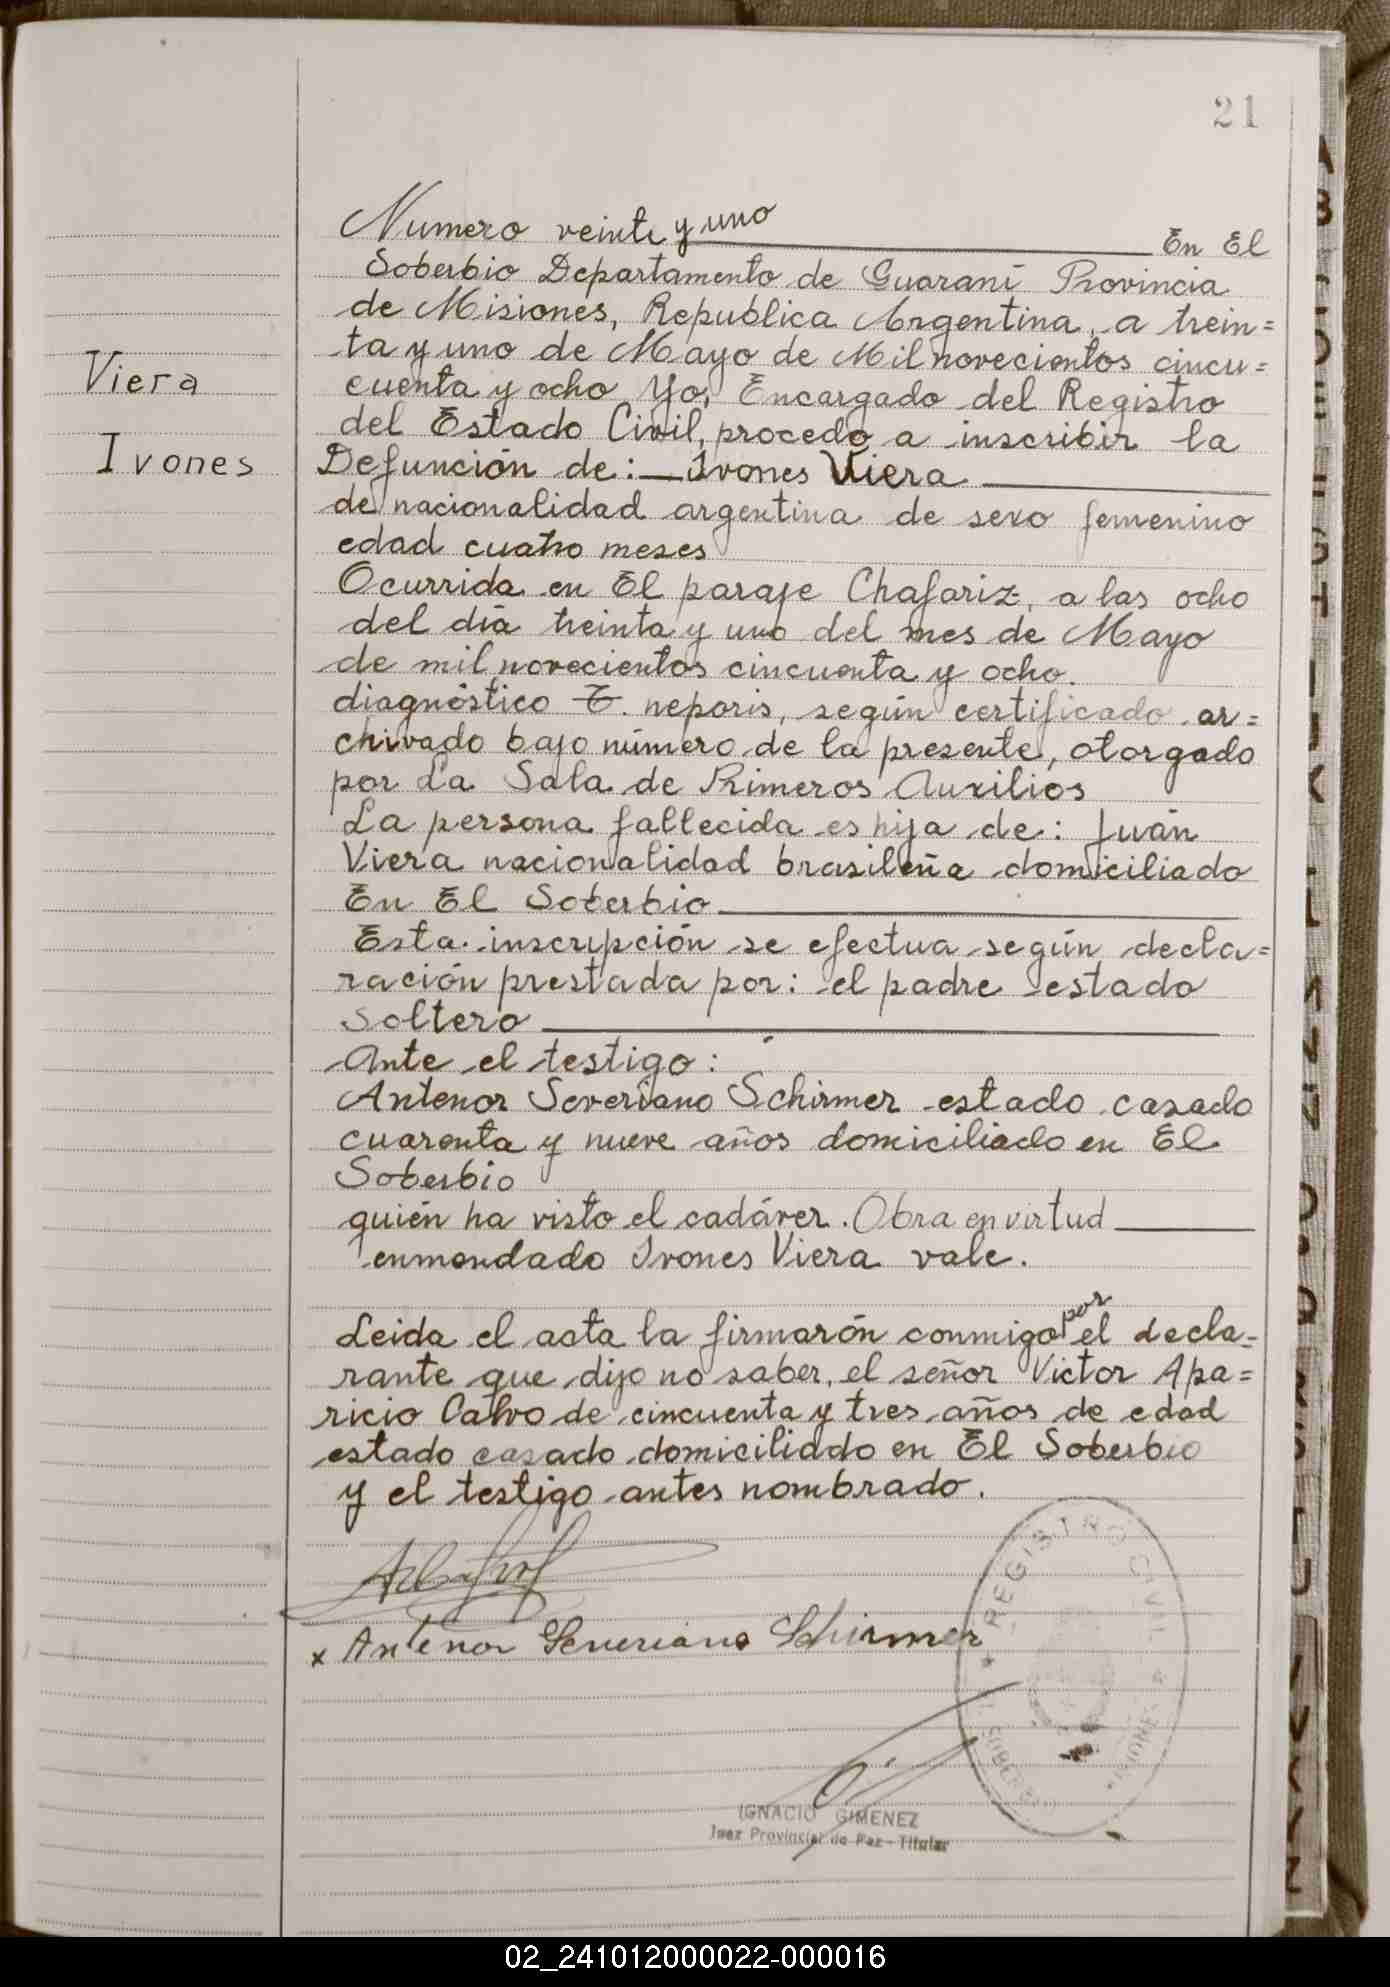 21
Numero veinte y uno En El
Soberbio Departamento de Guaraní Provincia
de Misiones, Republica Argentina, a trein=
ta y uno de Mayo de Mil novecientos cincu=
cuenta y ocho Yo, Encargado del Registro
del Estado Civil, procedo a inscribir la
Viera
Ivones
Defunción de: Ivones Viera
de nacionalidad argentina de sexo femenino
edad cuatro meses
Ocurrida en El paraje Chafariz, a las ocho
del día treinta y uno del mes de Mayo
de mil novecientos cincuenta y ocho.
diagnóstico T. neporis, según certificado ar=
chivado bajo número de la presente, otorgado
por La Sala de Primeros Auxilios
La persona fallecida es hija de: Juán
Viera nacionalidad brasileña domiciliado
En El Soberbio
Esta inscripción se efectua según decla=
ración prestada por: el padre estado
soltero
Ante el testigo:
Antenor Severiano Schirmer estado casado
cuarenta y nueve años domiciliado en El
Soberbio
quién ha visto el cadáver. Obra en virtud
enmendado Ivones Viera vale.
Leida el acta la firmarón conmigo por el decla-
rante que dijo no saber, el señor Victor Apa=
ricio Calvo de cincuenta y tres años de edad
estado casado domiciliado en El Soberbio
y el testigo antes nombrado.
x Antenor Severiano Schirmer
REGISTRO CIVIL
SOBERBIO
MISIONES
IGNACIO GIMENEZ
Juez Provincial de Paz - Titular
02_241012000022-000016